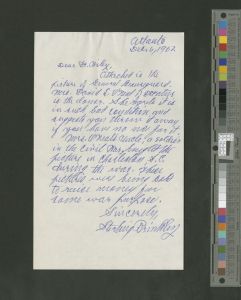 Atlanta
Dear Dr. Kirby
Attached is the
picture of General Beauregard.
Mrs. David L. O'Neal of
is the donor. She says it is
in such bad condition and
suggests you throw it away
if you have no use for it.
Mrs. O'Neal's uncle, a soldier
in the Civil War, bought the
picture in Charleston S.C.
during the war. These
pictures were being sold
to raise money for
some war purpose.
Sincerely,
Brinkley